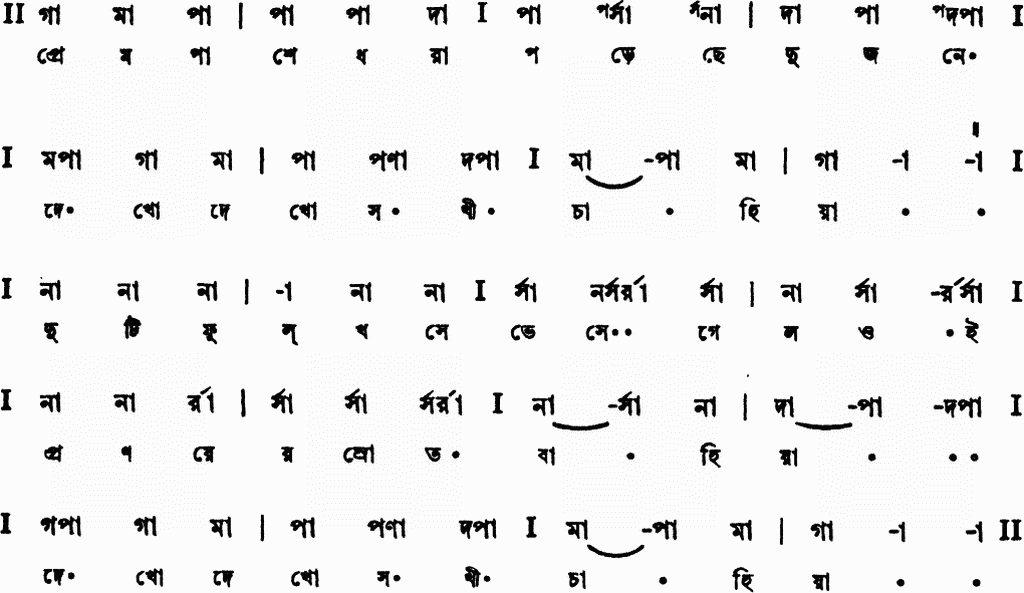 II গা মা পা | পা পা দা I পা ᵖর্সা ᵂর্সনা | দা পা ᵖদপা I
প্রে ম পা শে ধ রা প ড়ে ছে দু জ নে॰
॥
I মপা গা মা | পা পণা দপা I মা -পা মা | গা -া -া I
দে॰ খো দে খো স ॰ খী ॰ চা ॰ হি য়া ॰ ॰
I না না না | -া না না I র্সা নর্সর্রা র্সা | না র্সা -র্রর্সা I
দু টি ফু ল্ খ সে ভে সে॰॰ গে ল ও ॰ই
I না না র্রা | র্সা র্সা র্সর্রা I না -র্সা না | দা -পা -দপা I
প্র ণ য়ে র স্রো ত ॰ বা ॰ হি য়া ॰ ॰॰
I গপা গা মা | পা পণা দপা I মা -পা মা | গা -া -া II
দে॰ খো দে খো স॰ খী॰ চা ॰ হি য়া ॰ ॰